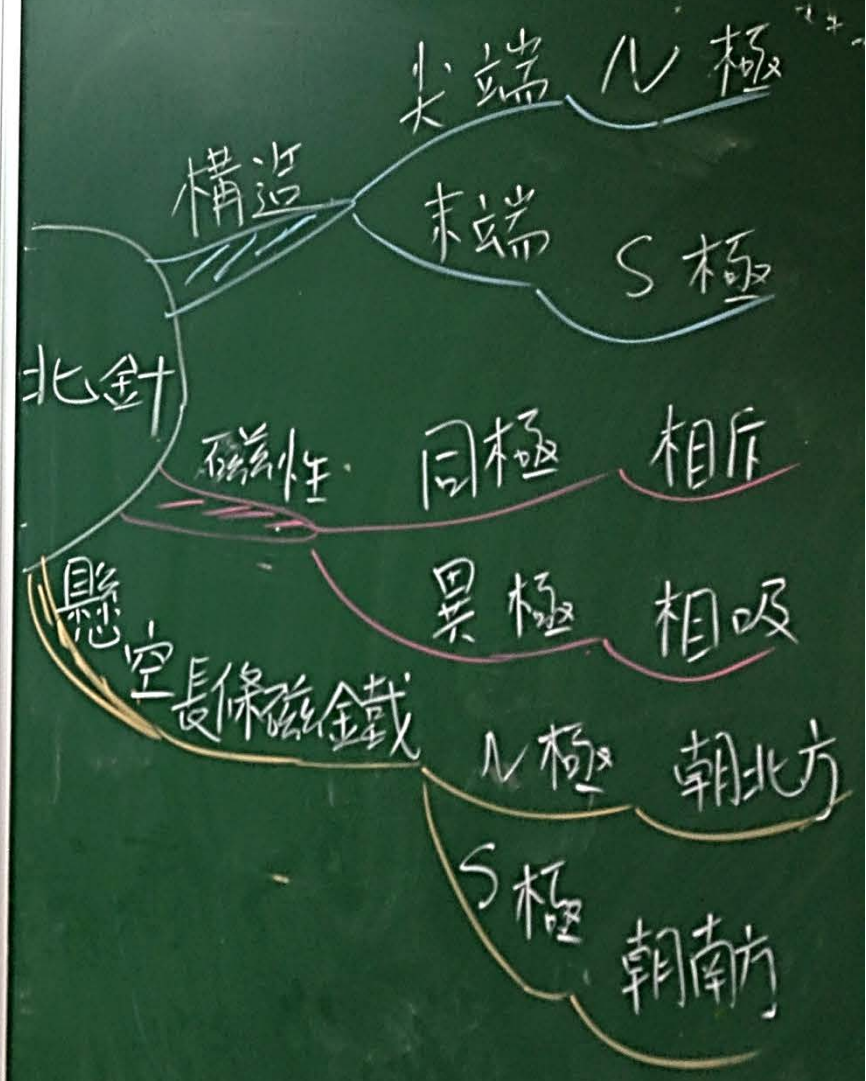 北針
構造
尖端 N極
末端 S極
磁性
同極 相斥
異極 相吸
懸空長條磁鐵
N極 朝北方
S極 朝南方